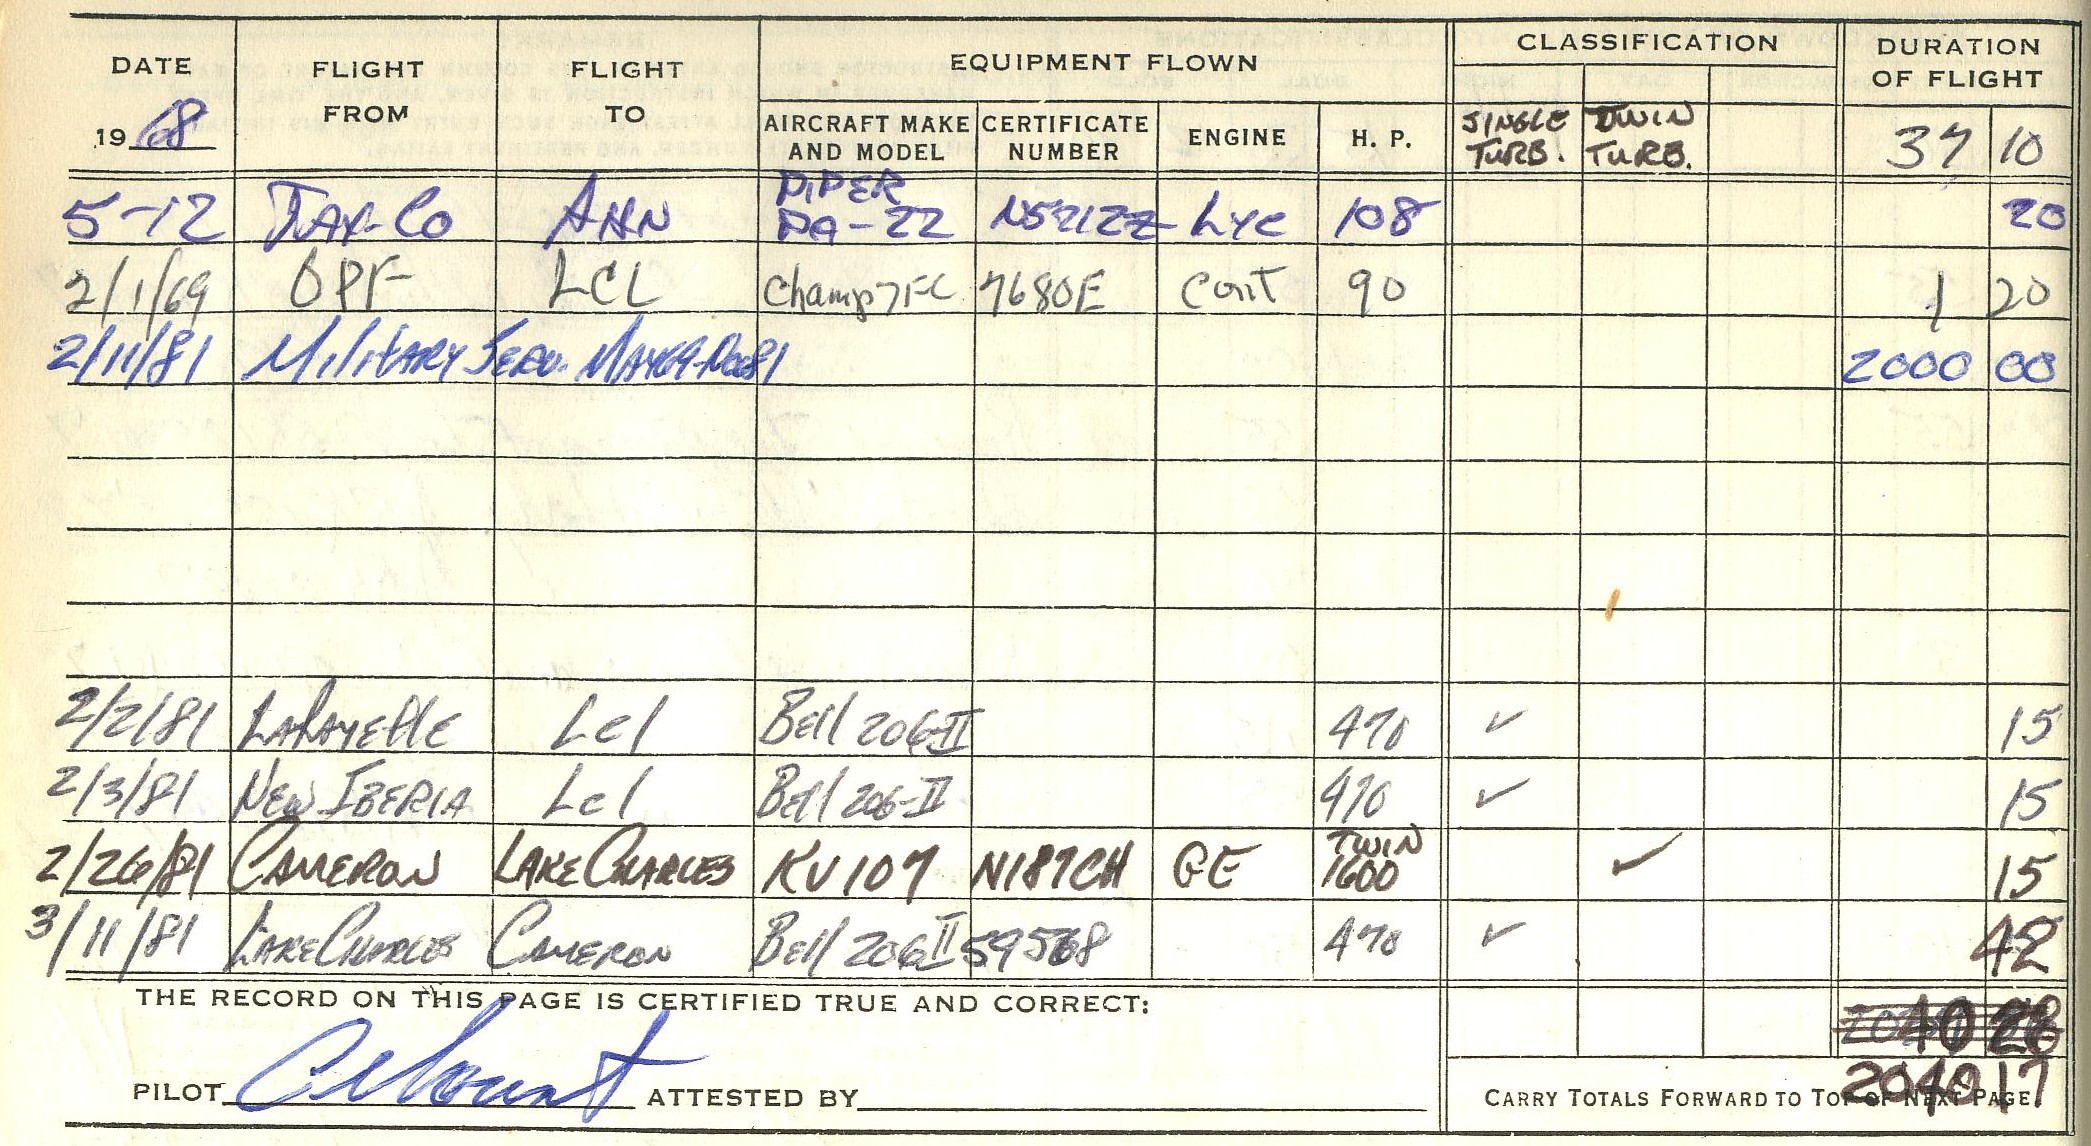 DATE FLIGHT FROM FLIGHT TO EQUIPMENT FLOWN CLASSIFICATION DURATION OF FLIGHT
1968 AIRCRAFT MAKE AND MODEL CERTIFICATE NUMBER ENGINE H. P. SINGLE TURB. TWIN TURB. 37 10
5-12 TAY-CO ANN PIPER PA-22 N5212Z LYC 108 20
2/1/69 OPF LCL Champ 7FC 7680E Cont 90 1 20
2/11/81 Military Serv. 2000 00
2/2/81 LAFAYETTE Lcl Bell 206-II 470 ✓ 15
2/3/81 NEW IBERIA Lcl Bell 206-II 470 ✓ 15
2/26/81 CAMERON LAKE CHARLES KV107 N187CH GE TWIN 1600 ✓ 15
3/11/81 LAKE CHARLES CAMERON Bell 206 II 59568 470 ✓ 42
THE RECORD ON THIS PAGE IS CERTIFIED TRUE AND CORRECT:
PILOT ATTESTED BY CARRY TOTALS FORWARD TO TOP OF NEXT PAGE.
2040 17